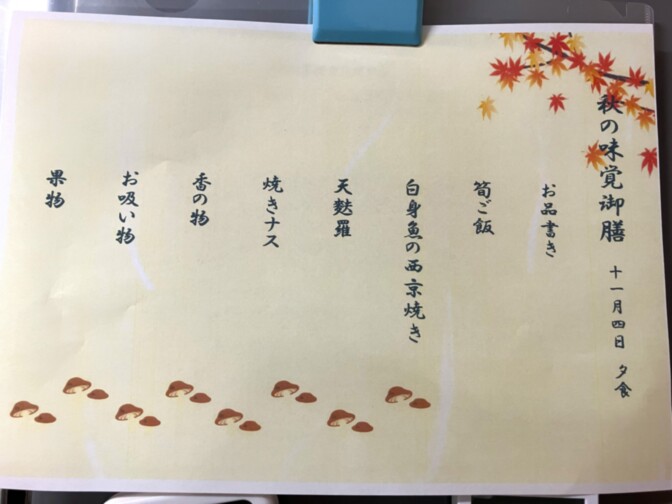 秋の味覚御膳 十一月四日 夕食
お品書き
筍ご飯
白身魚の西京焼き
天麩羅
焼きナス
香の物
お吸い物
果物